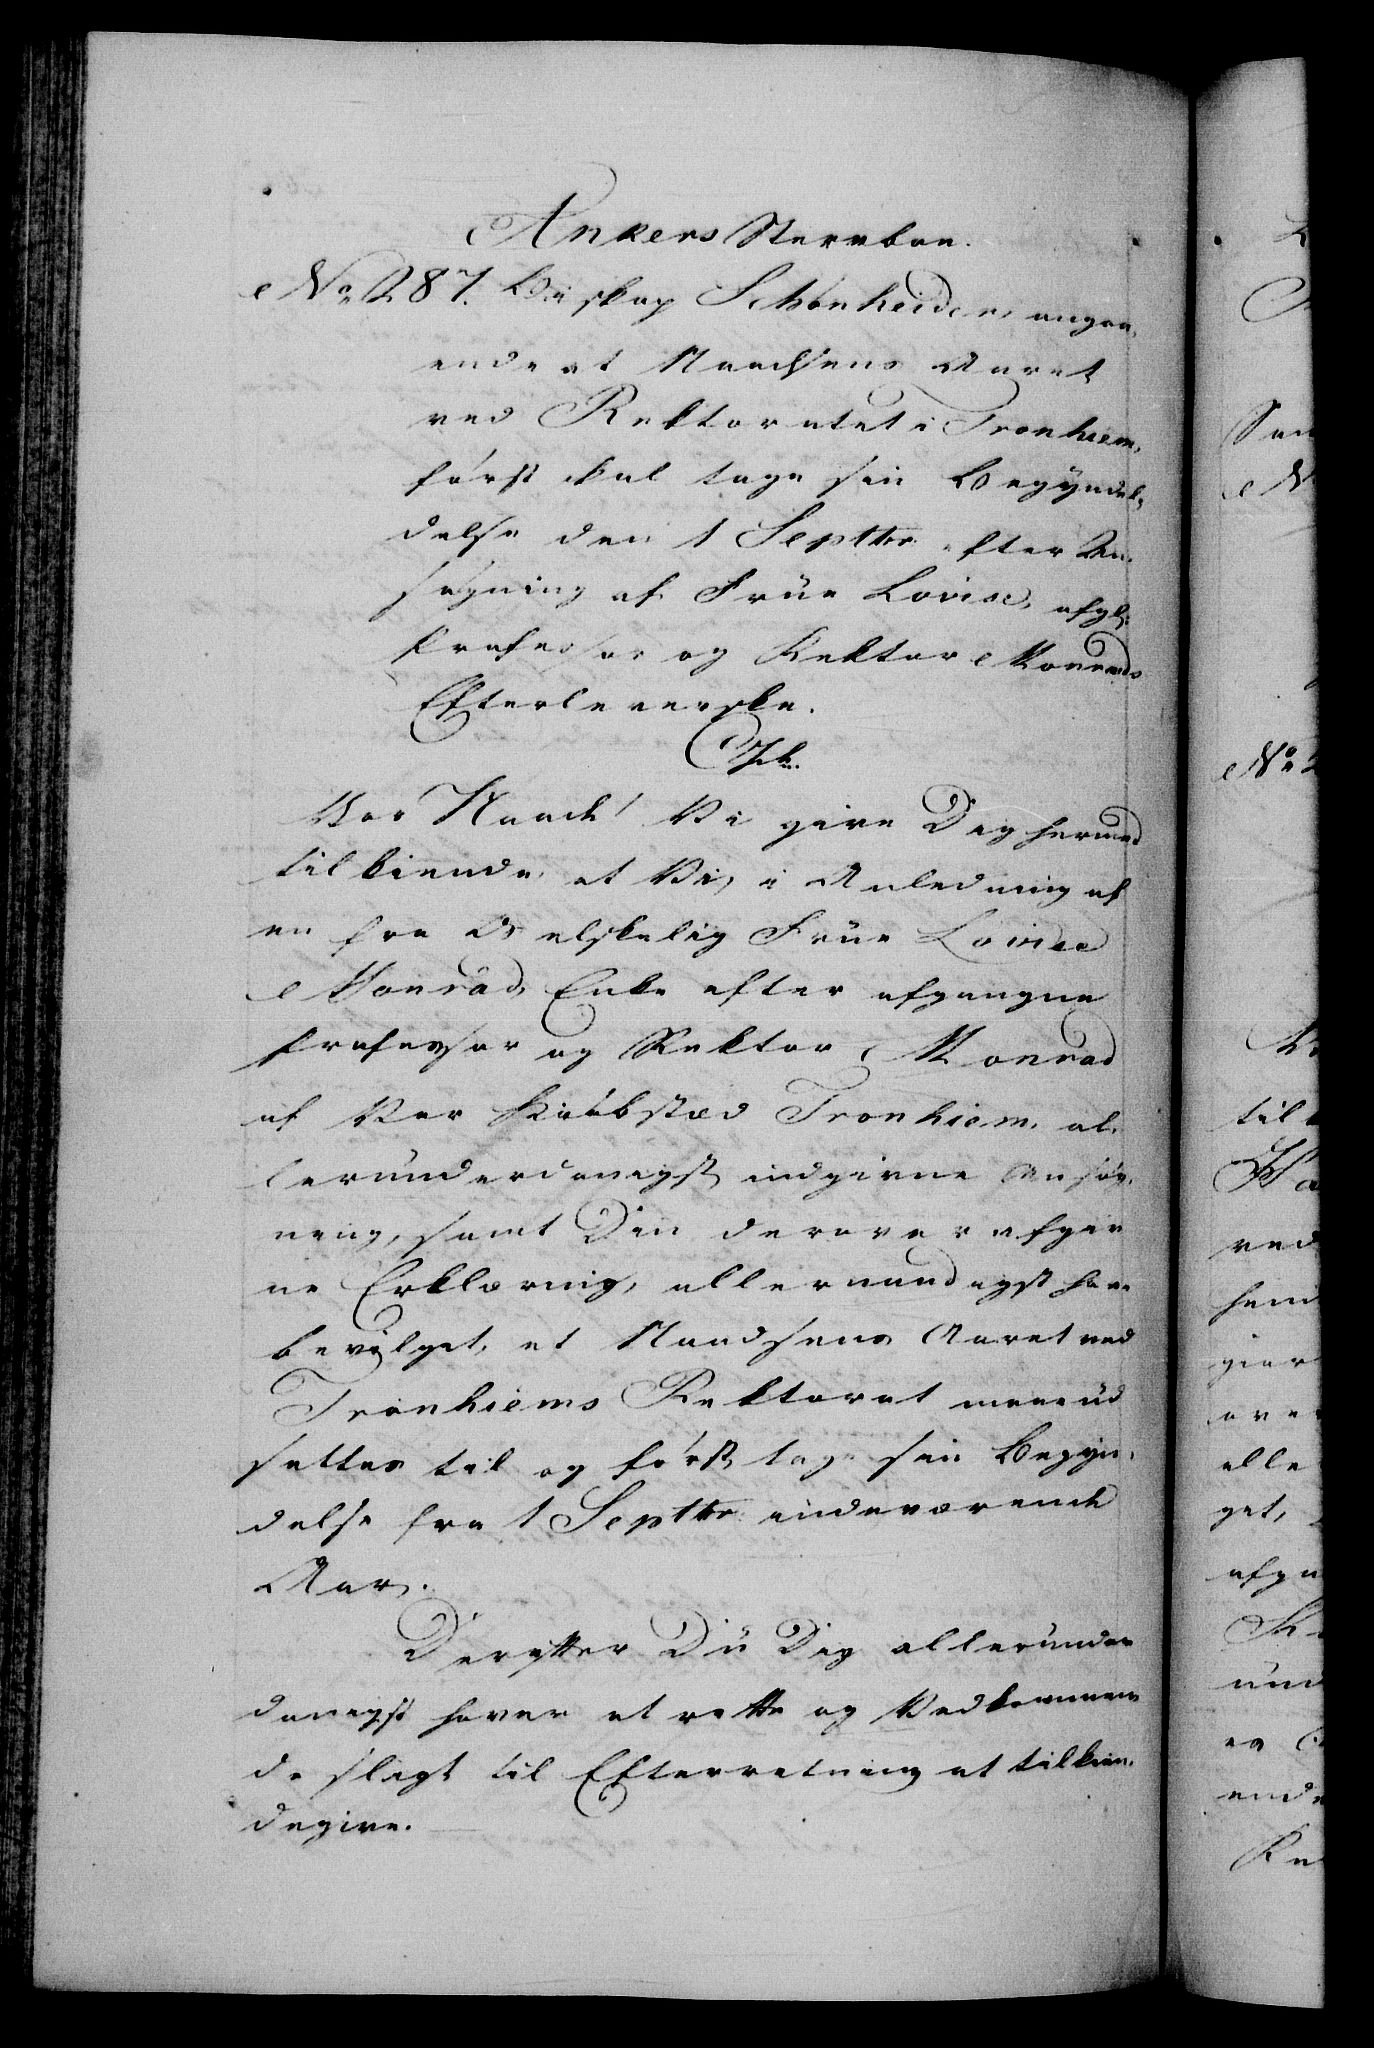 Ankers Stereboe.
No 287. Biskop Schönheider, angaa-
ende at Naadsens Aaret
ved Rektoratet i Tronhiem,
først skal tage sin Begÿndel-
delse den 1 Septbr efter An-
søgning af Früe Lovise, afg:
Professor og Rektor Monrads
Efterleverske.
Vor Naade! Vi give Dig hermed
tilkiende, at Vi, i Anledning af
en fra Os elskelig Früe Lovise
Monrad, Enke efter afgangne
Professor og Rektor Monrad
af Vor Kiøbstæd Tronhiem, al-
leründerdanigst indgivne Ansøg-
ning, samt Din derover afgiv
ne Erklæring, allernaadigst have
bevilget, at Naadsens Aaret ved
Tronhiems Rektorat maae üd
settes til og først tage sin Begyn-
delse fra 1 Septbr indeværende
Aar.
Derefter Dü Dig alleründer
danigst haver at rette og Vedkommen
de sligt til Efterretning at tilkien-
degive.